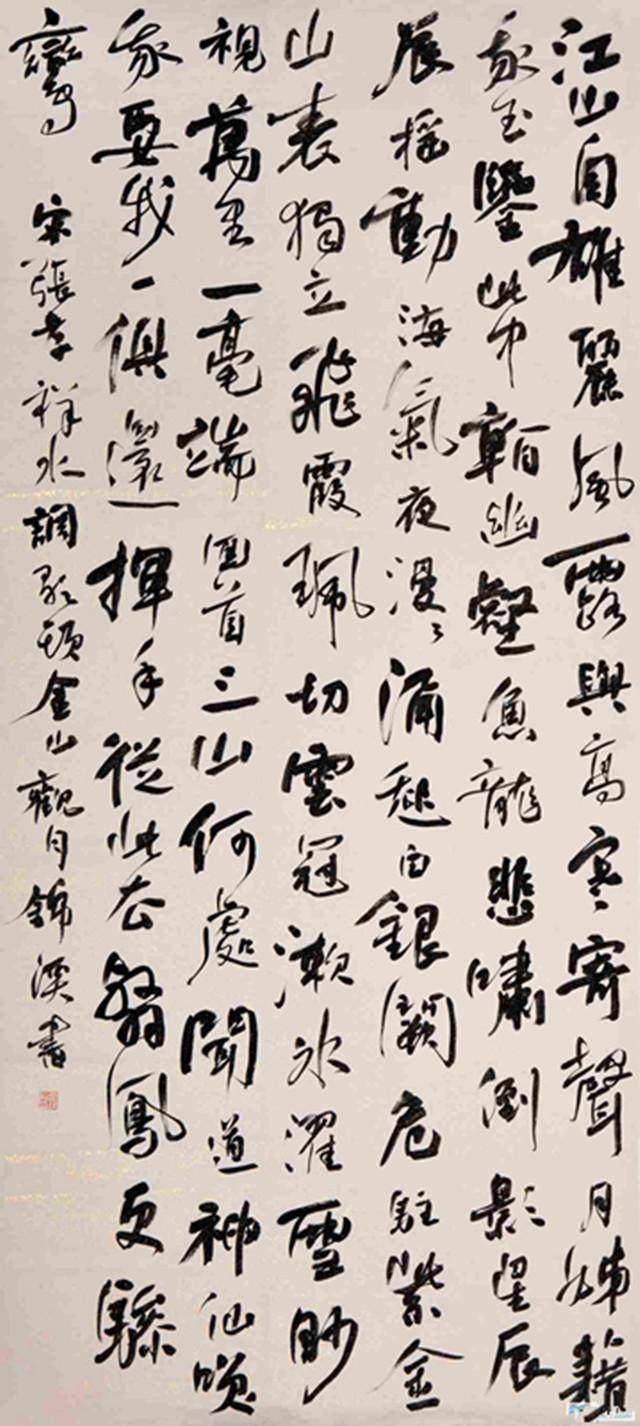 江山自雄麗風露與高寒寄聲月姊藉
我玉鑒此中看幽壑魚龍悲嘯倒影星辰
辰摇動海氣夜漫漫涌起白銀闕危駐紫金
山表獨立飛霞珮切雲冠漱冰濯雪眇
視萬里一毫端回首三山何處聞道神仙笑
我要我一俱還揮手從此去翳鳳更驂
鸞 宋張孝祥水調歌頭金山觀月錦溪書